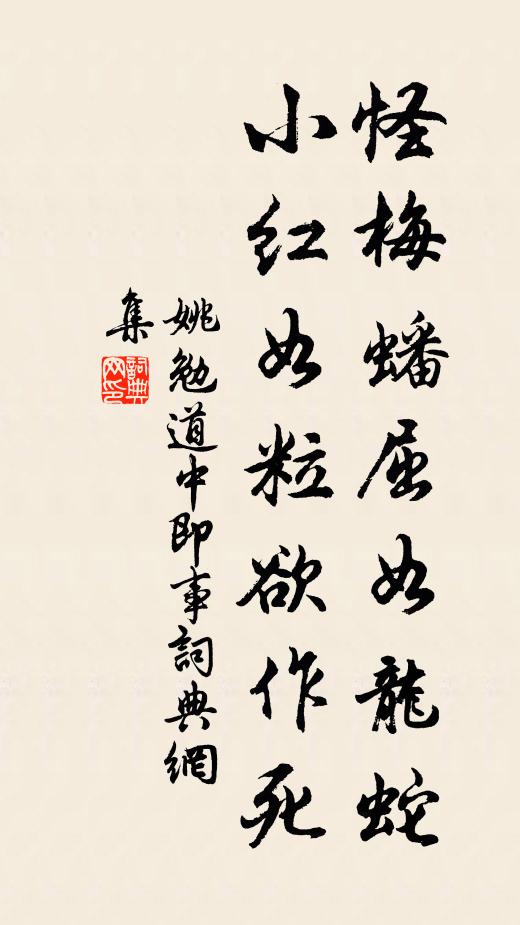 怪梅蟠屈如龍蛇
小红如粒欲作死
姚勉道中即事詞典網
集
詞典
网印